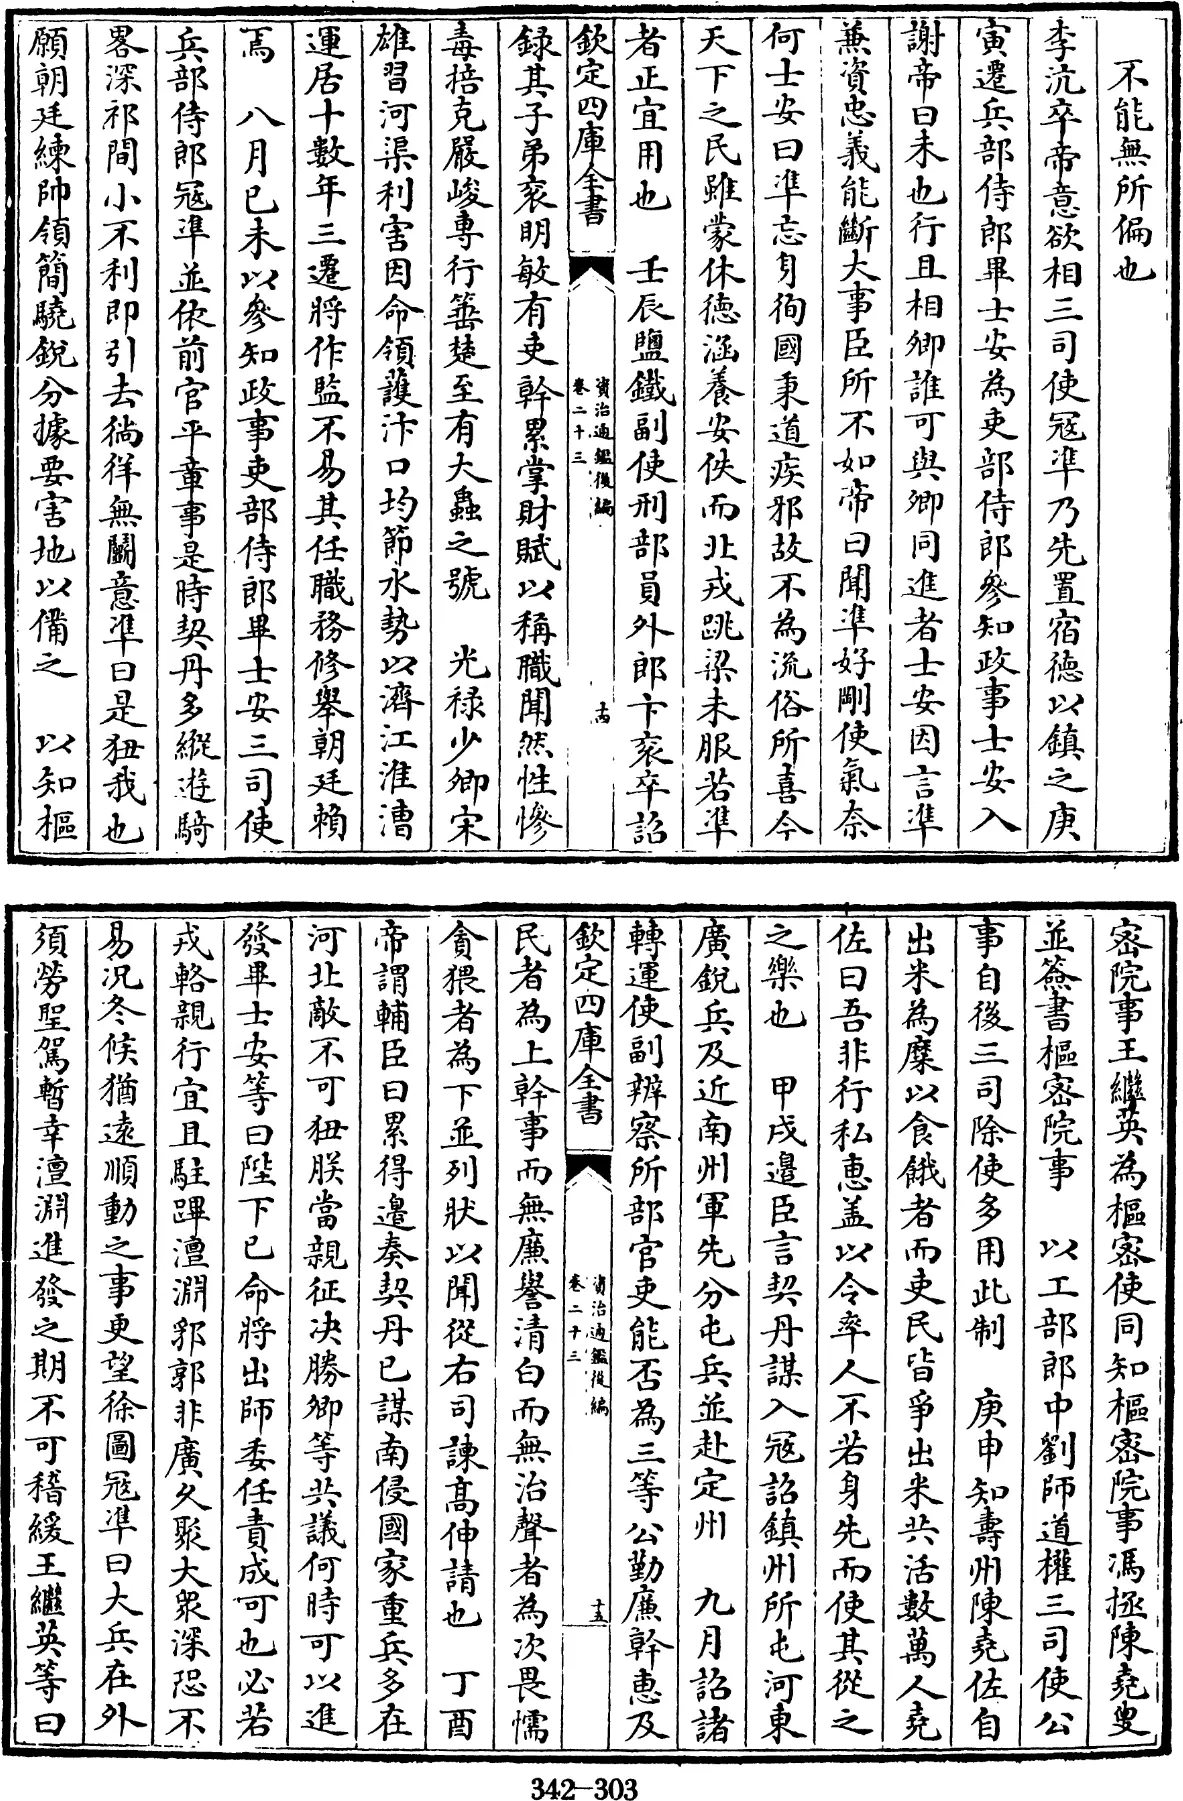 不能無所偏也
李沆卒帝意欲相三司使冦凖乃先置宿德以鎮之庚
寅遷兵部侍郎畢士安為吏部侍郎參知政事士安入
謝帝曰未也行且相卿誰可與卿同進者士安因言凖
兼資忠義能斷大事臣所不如帝曰聞凖好剛使氣奈
何士安曰凖忘身徇國秉道疾邪故不為流俗所喜今
天下之民雖蒙休德涵養安佚而北戎跳梁未服若凖
者正宜用也　壬辰鹽鐵副使刑部員外郎卞衮卒詔
欽定四庫全書
資治通鑑後編
卷二十三
十四
録其子弟衮明敏有吏幹累掌財賦以稱職聞然性慘
毒掊克嚴峻專行箠楚至有大蟲之號　光禄少卿宋
雄習河渠利害因命領護汴口均節水勢以濟江淮漕
運居十數年三遷將作監不易其任職務修舉朝廷賴
焉　八月已未以參知政事吏部侍郎畢士安三司使
兵部侍郎冦凖並依前官平章事是時契丹多縱遊騎
畧深祁間小不利即引去徜徉無鬭意凖曰是狃我也
願朝廷練帥領簡驍鋭分據要害地以備之　以知樞
密院事王繼英為樞密使同知樞密院事馮拯陳堯叟
並簽書樞密院事　以工部郎中劉師道權三司使公
事自後三司除使多用此制　庚申知壽州陳堯佐自
出米為糜以食餓者而吏民皆爭出米共活數萬人堯
佐曰吾非行私惠盖以令率人不若身先而使其從之
之樂也　甲戌邉臣言契丹謀入冦詔鎮州所屯河東
廣鋭兵及近南州軍先分屯兵並赴定州　九月詔諸
轉運使副辨察所部官吏能否為三等公勤廉幹惠及
欽定四庫全書
資治通鑑後編
卷二十三
十五
民者為上幹事而無廉譽清白而無治聲者為次畏懦
貪猥者為下並列狀以聞從右司諫髙伸請也　丁酉
帝謂輔臣曰累得邉奏契丹已謀南侵國家重兵多在
河北敵不可狃朕當親征决勝卿等共議何時可以進
發畢士安等曰陛下已命將出師委任責成可也必若
戎輅親行宜且駐蹕澶淵郛郭非廣久聚大衆深恐不
易况冬候猶遠順動之事更望徐圖冦凖曰大兵在外
須勞聖駕暫幸澶淵進發之期不可稽緩王繼英等曰
342-303